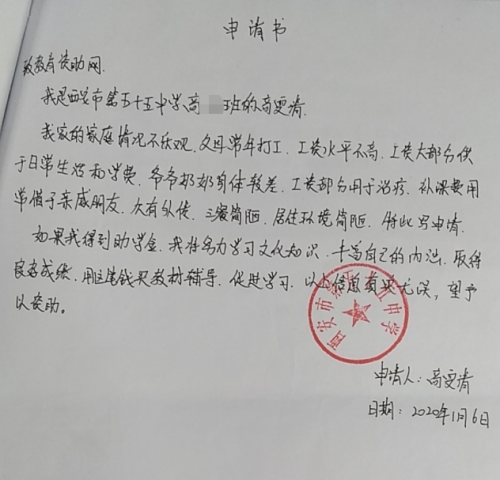 申请书
致教育资助网。
我是西安市第五十五中学,高 班的高雯倩
我家的家庭情况不乐观,父母常年打工,工资水平不高,工资大部分供
于日常生活和学费,爷爷奶奶身体较差,工资部分用于治疗,补课费用
常借于亲戚朋友,欠有外债,三餐简陋,居住环境简陋,特此写申请.
如果我得到助学金,我将努力学习文化知识,丰富自己的内涵,取得
良好成绩,用这笔钱买教材辅导,促进学习,以上信息真实无误,望予
以资助。
西安市第五十五中学
申请人:高雯倩
日期:2020年1月6日